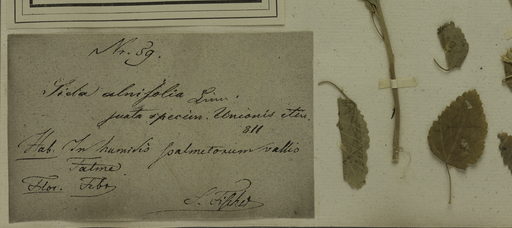 Nr. 89.
Sida alnifolia Linn.
juxta specim. Unionis itin.
811
Hab. In humidis palmetorum vallis
Fatme
Flor. Febr.
S. Fischer